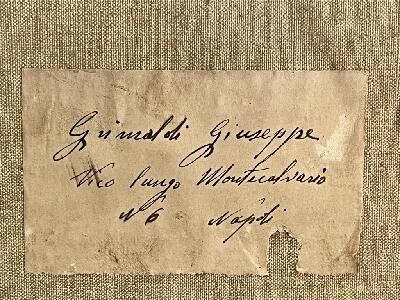 Grimaldi Giuseppe
Vico lungo Montecalvario
N 6 Napoli